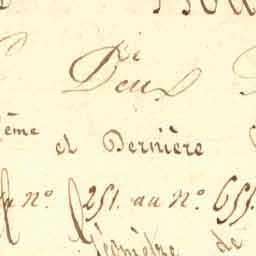 Deux
ème et Dernière
du N.º 251. au N.º 655.
Géomètre de